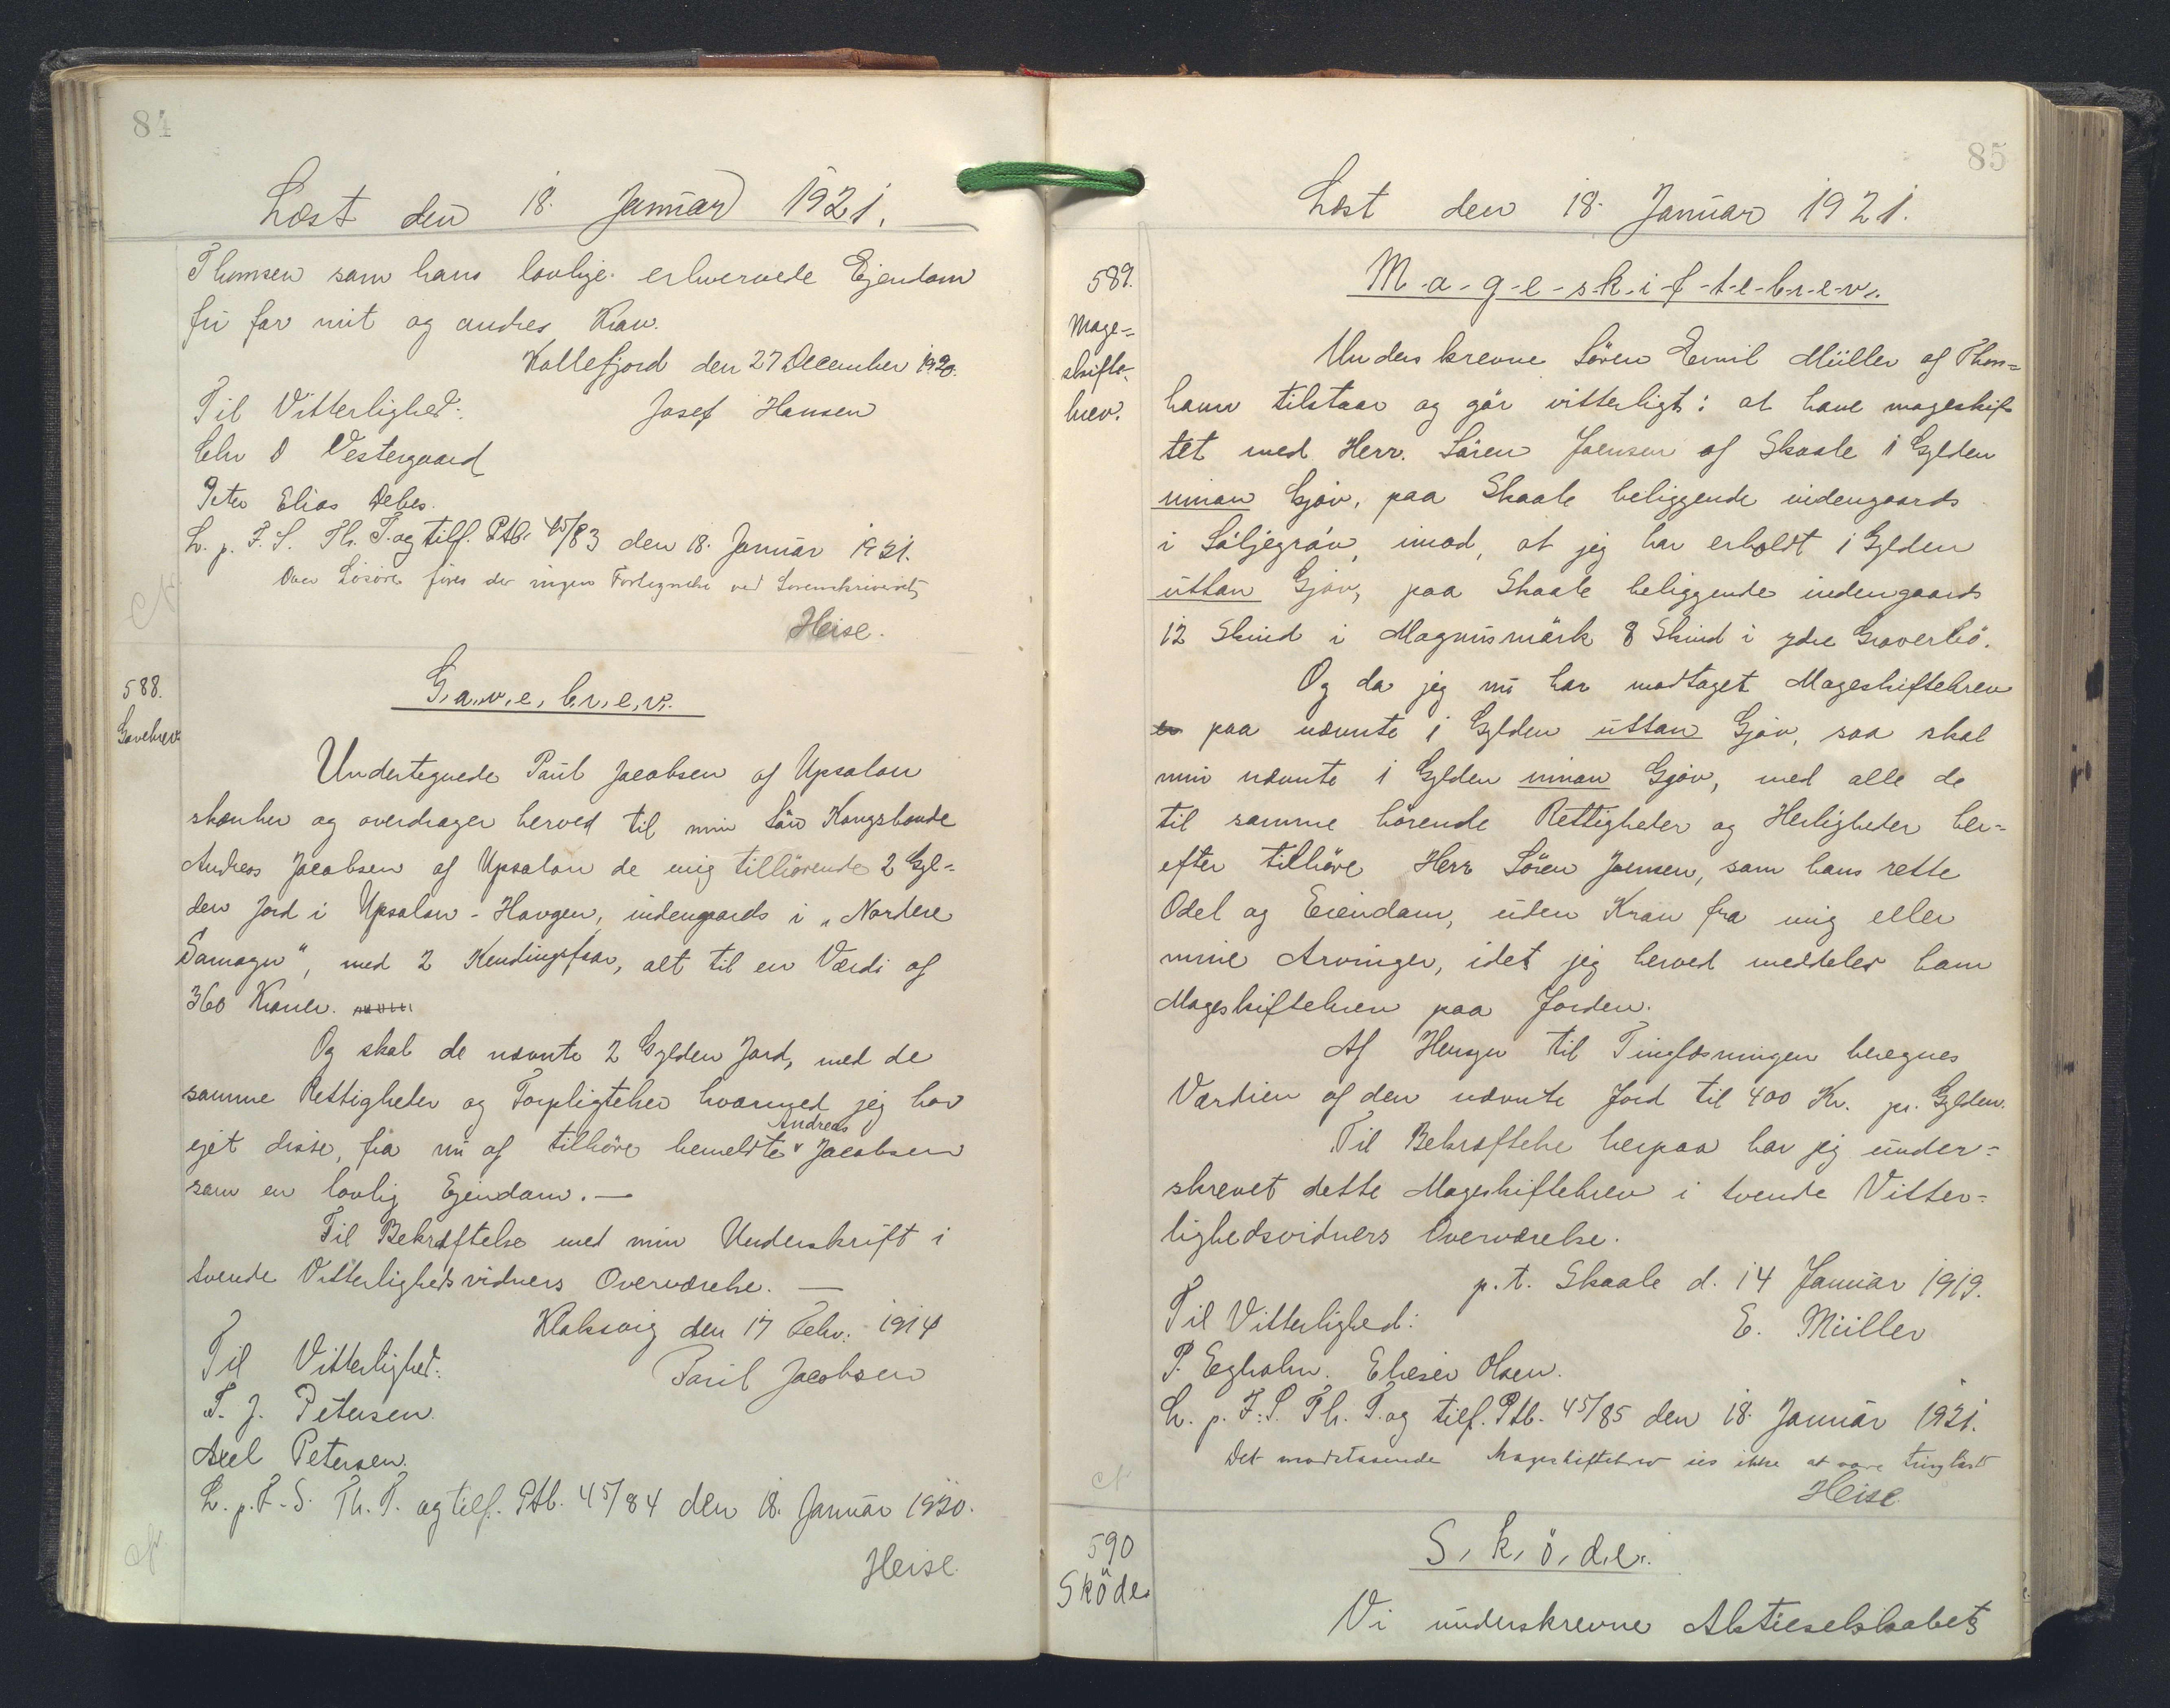 84
Læst den 18. Januar 1921.
Thomsen som hans lovlige erhvervede Ejendom
fri for mit og andres Krav.
Kollefjord den 27 December 1920.
Til Vitterlighed: Josef Hansen
Chr D Vestergaard
Peter Elias Debes.
L. p. F. S. Th. T. og tilf. Ptb. 45/83 den 18. Januar 1921.
Over Lösöre föres der ingen Fortegnelse ved Sorenskriveriet
Heise.
588.
Gavebrev
G.a.v.e.b.r.e.v.
Undertegnede Paul Jacobsen af Upsalon
skænker og overdrager herved til min Sön Kongsbonde
Andreas Jacobsen af Upsalon de mig tilhörende 2 Gyl=
den Jord i Upsalon-Havgen, indengaards i „Nordere
Damagu“, med 2 Kendingsfaar, alt til en Værdi af
360 Kroner.
Og skal de nævnte 2 Gylden Jord, med de
samme Rettigheder og Forpligtelser hvormed jeg har
Andreas
ejet disse, fra nu af tilhöre bemeldte v Jacobsen
som en lovlig Ejendom.—
Til Bekræftelse med min Underskrift i
tvende Vitterlighedsvidners Overværelse. —
Klaksvig den 17 Febr. 1914
Til Vitterlighed: Paul Jacobsen
T. J. Petersen.
Axel Petersen.
L. p. F. S. Th. T. og tilf. Ptb. 45/84 den 18. Januar 1920.
Heise
85
Læst den 18. Januar 1921.
589.
Mage=
skifte-
brev.
M-a-g-e-s-k-i-f-t-e-b-r-e-v.
Underskrevne Sören Emil Müller af Thors=
havn tilstaar og gör vitterligt: at have mageskif
tet med Herr. Sören Joensen af Skaale 1 Gylden
innan Gjáv, paa Skaale beliggende indengaards
i Säljegráv, imod, at jeg har erholdt 1 Gylden
uttan Gjáv, paa Skaale beliggende indengaards
12 Skind i Magnusmärk 8 Skind i ydre Graverbö.
Og da jeg nu har modtaget Mageskiftebrev
paa nævnte 1 Gylden uttan Gjáv, saa skal
min nævnte 1 Gylden innan Gjáv, med alle de
til samme hörende Rettigheder og Herligheder her=
efter tilhöre Herr Sören Joensen, som hans rette
Odel og Eiendom, uden Krav fra mig eller
mine Arvinger, idet jeg herved meddeler ham
Mageskiftebrev paa Jorden.
Af Hensyn til Tinglæsningen beregnes
Værdien af den nævnte Jord til 400 Kr. pr. Gylden.
Til Bekræftelse herpaa har jeg under=
skrevet dette Mageskiftebrev i tvende Vitter=
lighedsvidners Overværelse.
p.t. Skaale d. 14 Januar 1919.
Til Vitterlighed: E. Müller
P. Egholm. Elieser Olsen.
L. p. F. S. Th. T. og tilf. Ptb. 45/85 den 18. Januar 1921.
Det modstaaende Mageskiftebrev ses ikke at være tinglæst
Heise
590
Sköde
S.k.ö.d.e.
Vi underskrevne Aktieselskabet